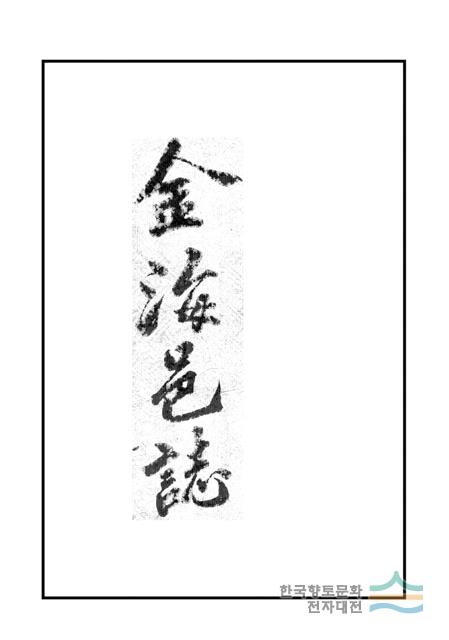 金海邑誌
한국향토문화
전자대전